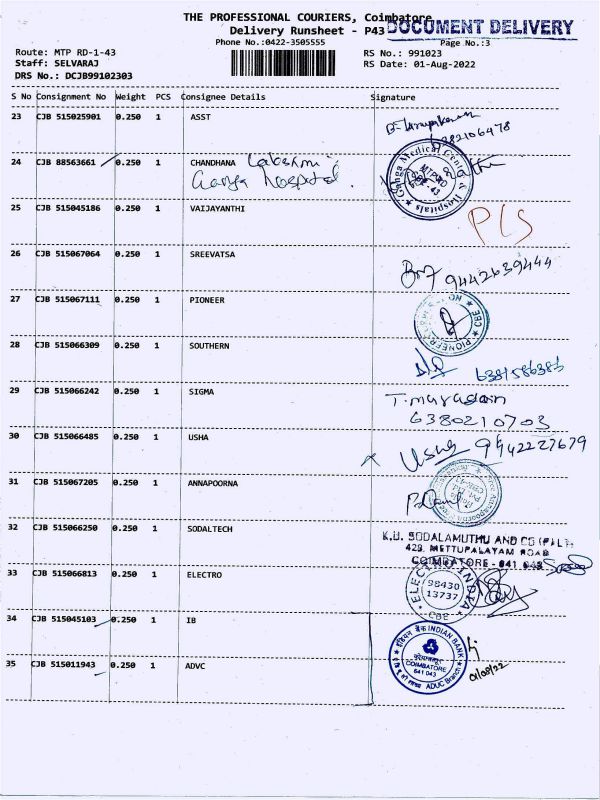 THE PROFESSIONAL COURIERS, Coimbatore
Delivery Runsheet - P43
DOCUMENT DELIVERY
Phone No.:0422-3505555
Page No.:3
Route: MTP RD-1-43
RS No.: 991023
Staff: SELVARAJ
RS Date: 01-Aug-2022
DRS No.: DCJB99102303
S No Consignment No Weight PCS Consignee Details Signature
23 CJB 515025901 0.250 1 ASST
24 CJB 88563661 0.250 1 CHANDHANA Lakshmi
Ganga hospital.
Ganga Medical Centre & Hospitals
MTP RD
CBE-43
25 CJB 515045186 0.250 1 VAIJAYANTHI
PLS
26 CJB 515067064 0.250 1 SREEVATSA
9442639444
27 CJB 515067111 0.250 1 PIONEER
PIONEER
CBE
28 CJB 515066309 0.250 1 SOUTHERN
6381586386
29 CJB 515066242 0.250 1 SIGMA
6380210703
30 CJB 515066485 0.250 1 USHA
Usha 9942227679
31 CJB 515067205 0.250 1 ANNAPOORNA
32 CJB 515066250 0.250 1 SODALTECH
K.U. SODALAMUTHU AND CO (P) LTD
429, METTUPALAYAM ROAD
COIMBATORE - 641 043
33 CJB 515066813 0.250 1 ELECTRO
ELECTRO INDIA
98430
13737
CBE
34 CJB 515045103 0.250 1 IB
इंडियन बैंक INDIAN BANK
कोयम्बत्तूर
COIMBATORE
641 043
ADUC Branch
35 CJB 515011943 0.250 1 ADVC
01/08/22